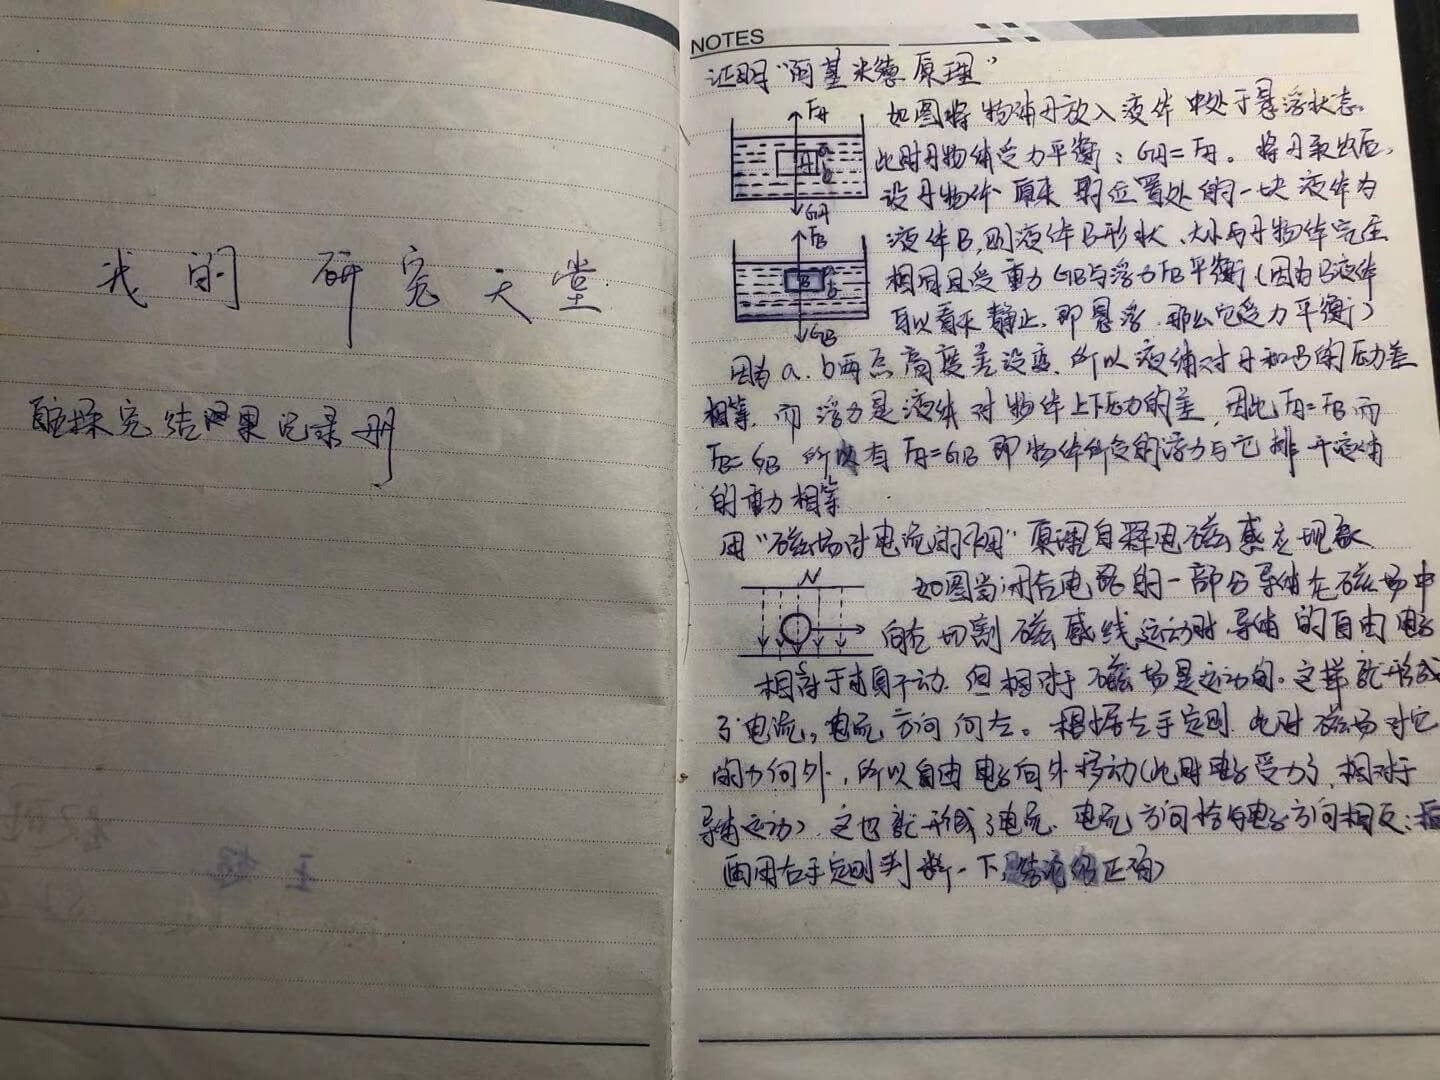 我的研究天堂
探究结果记录册
NOTES
证明“阿基米德原理”
如图将物体A放入液体中处于悬浮状态.
此时A物体受力平衡：GA=FA。将A取出后，
设A物体原来的位置处的一块液体为
液体B，则液体B形状、大小与A物体完全
相同且受重力GB与浮力FB平衡（因为B液体
可以看来静止，即悬浮，那么它受力平衡）
因为a、b两点高度差没变，所以液体对A和B的压力差
相等，而浮力是液体对物体上下压力的差，因此FA=FB而
FB=GB 所以有FA=GB 即物体所受的浮力与它排开液体
的重力相等
用“磁场对电流的作用”原理解释电磁感应现象
如图当闭合电路的一部分导体在磁场中
向右切割磁感线运动时，导体的自由电子
相对于自身不动，但相对于磁场是运动的。这样就形成
了电流，电流方向向左。根据左手定则，此时磁场对它
的力向外，所以自由电子向外移动（此时电子受力了，相对于
导体运动），这也就形成了电流，电流方向恰与电子方向相反；
再用右手定则判断一下，结论仍正确）
FA
A
a
b
GA
FB
B
a
b
GB
N
S